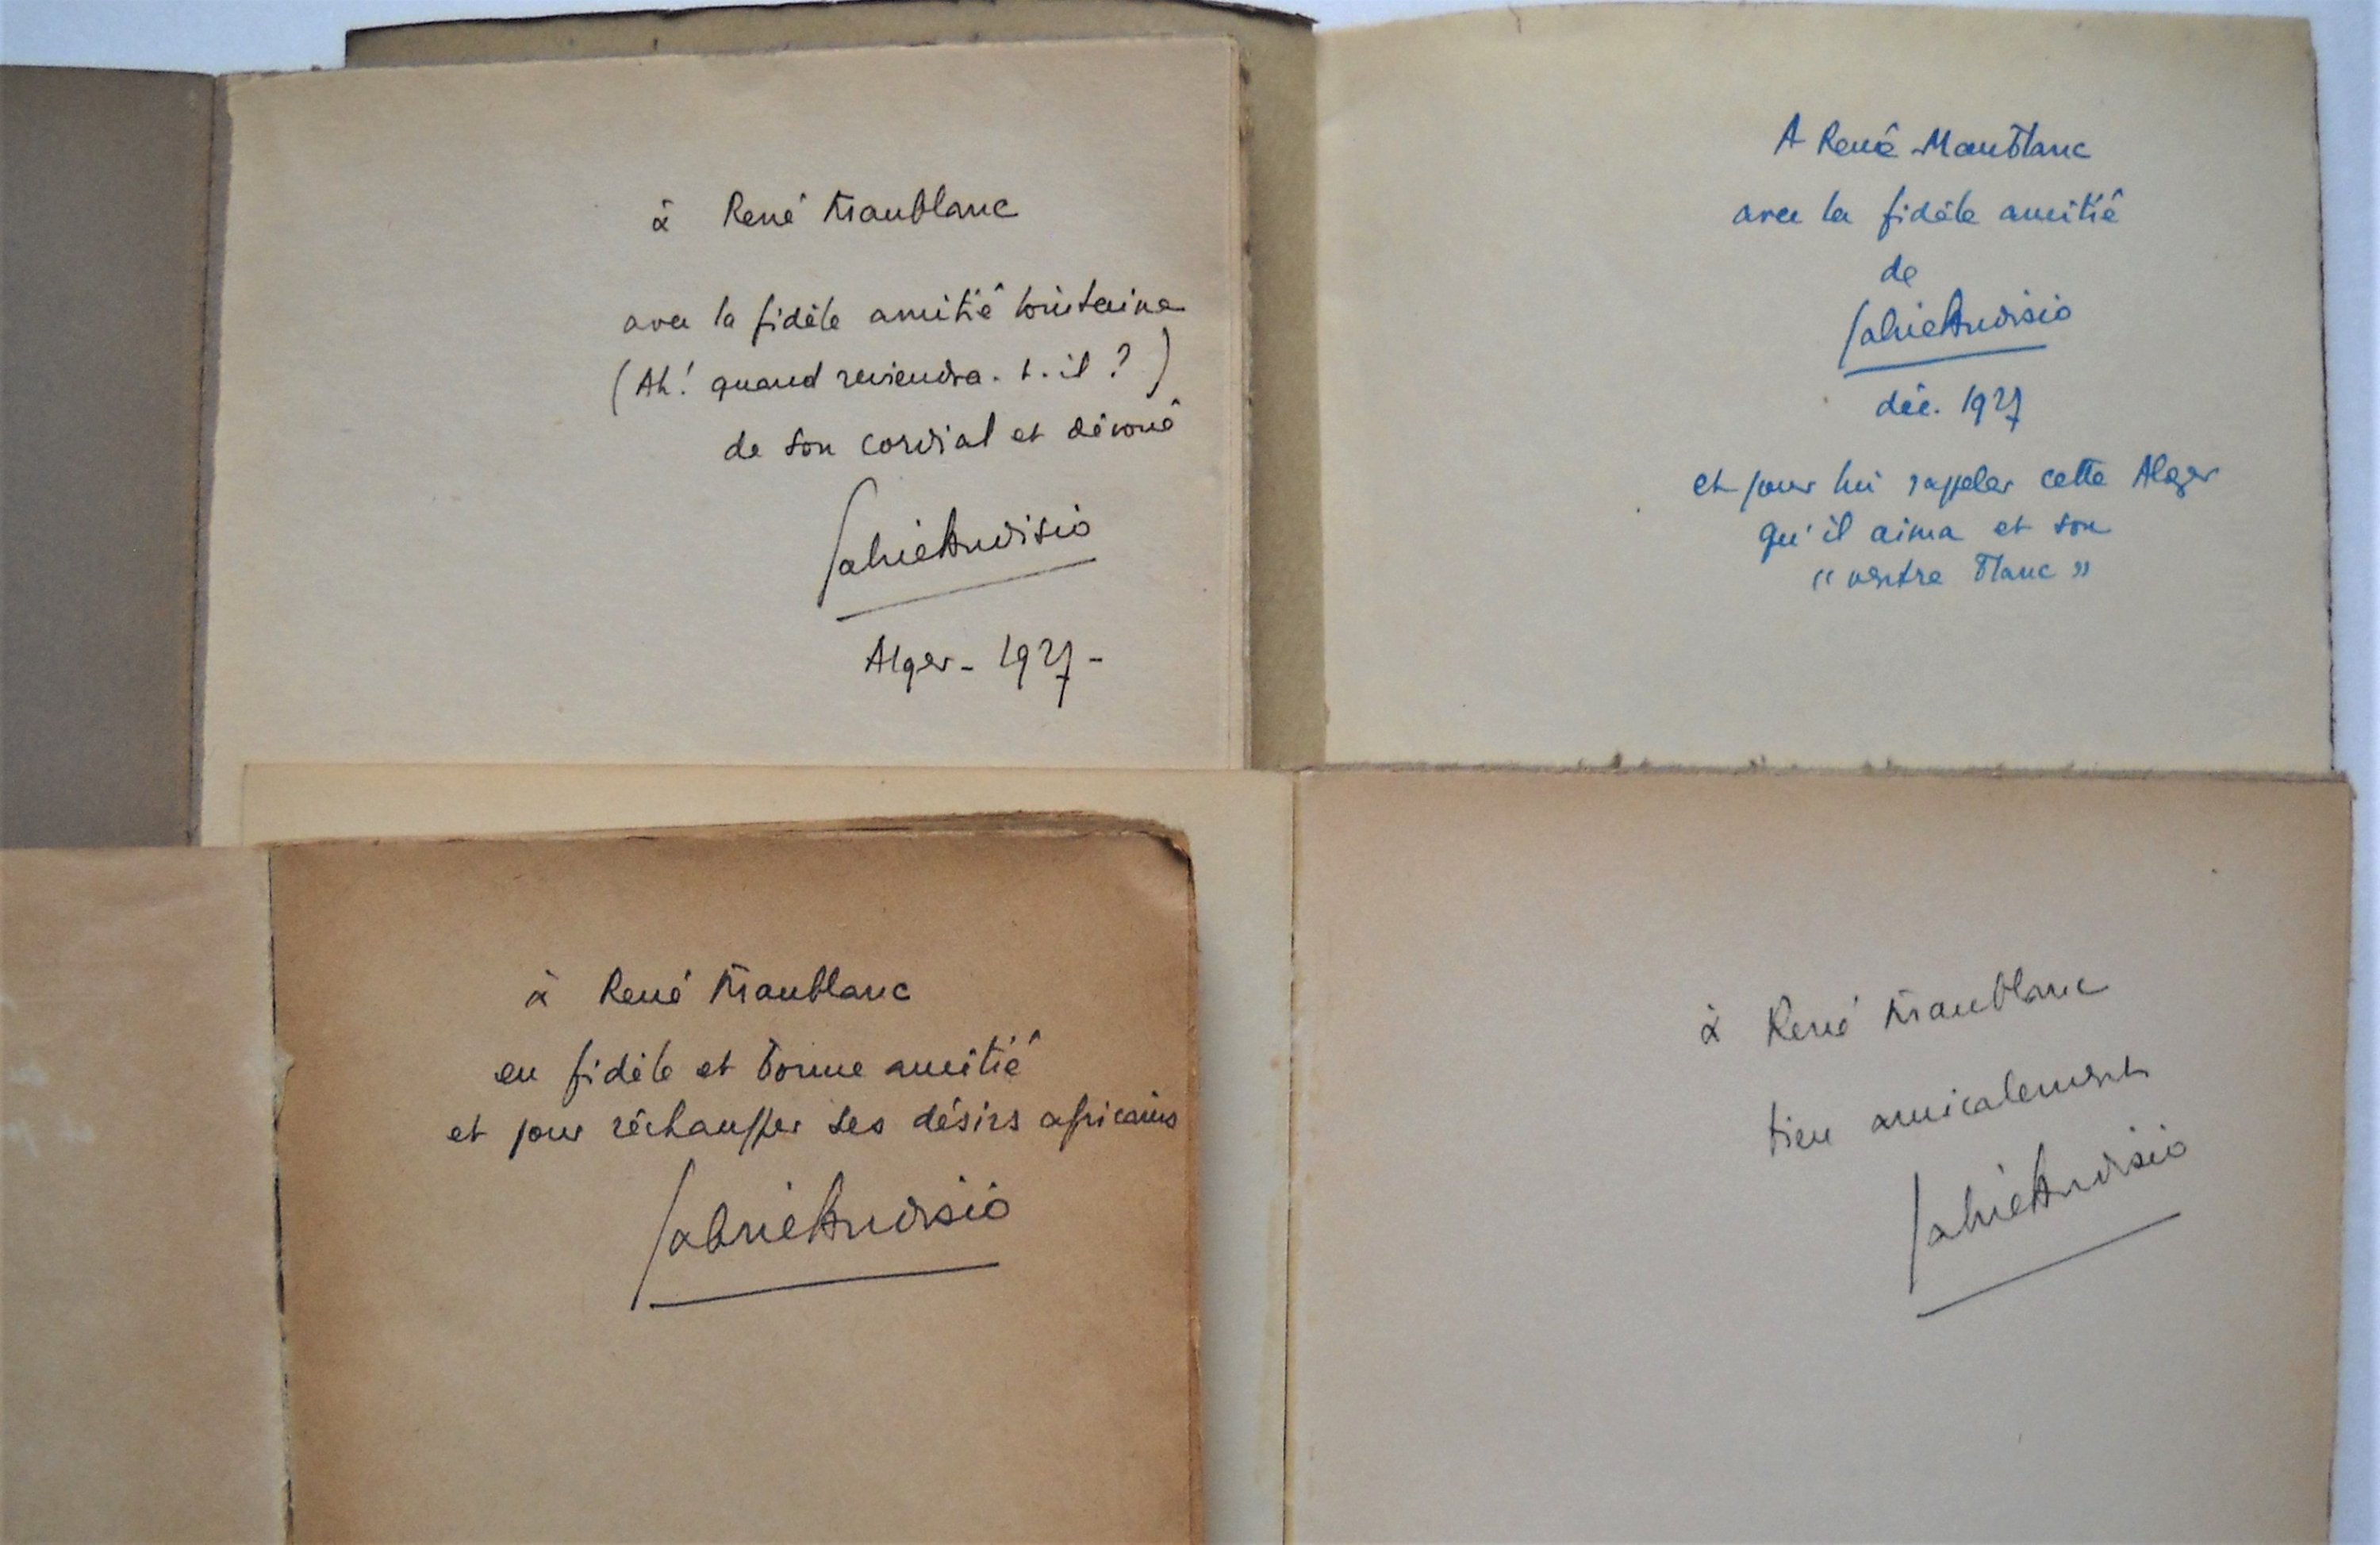 à René Maublanc
avec la fidèle amitié lointaine
(Ah! quand reviendra-t-il?)
de son cordial et dévoué
Gabriel Audisio
Alger - 1927 -
A René Maublanc
avec la fidèle amitié
de
Gabriel Audisio
déc. 1927
et pour lui rappeler cette Alger
qu'il aima et son
"ventre blanc"
à René Maublanc
en fidèle et bonne amitié
et pour réchauffer ses désirs africains
Gabriel Audisio
à René Maublanc
bien amicalement
Gabriel Audisio